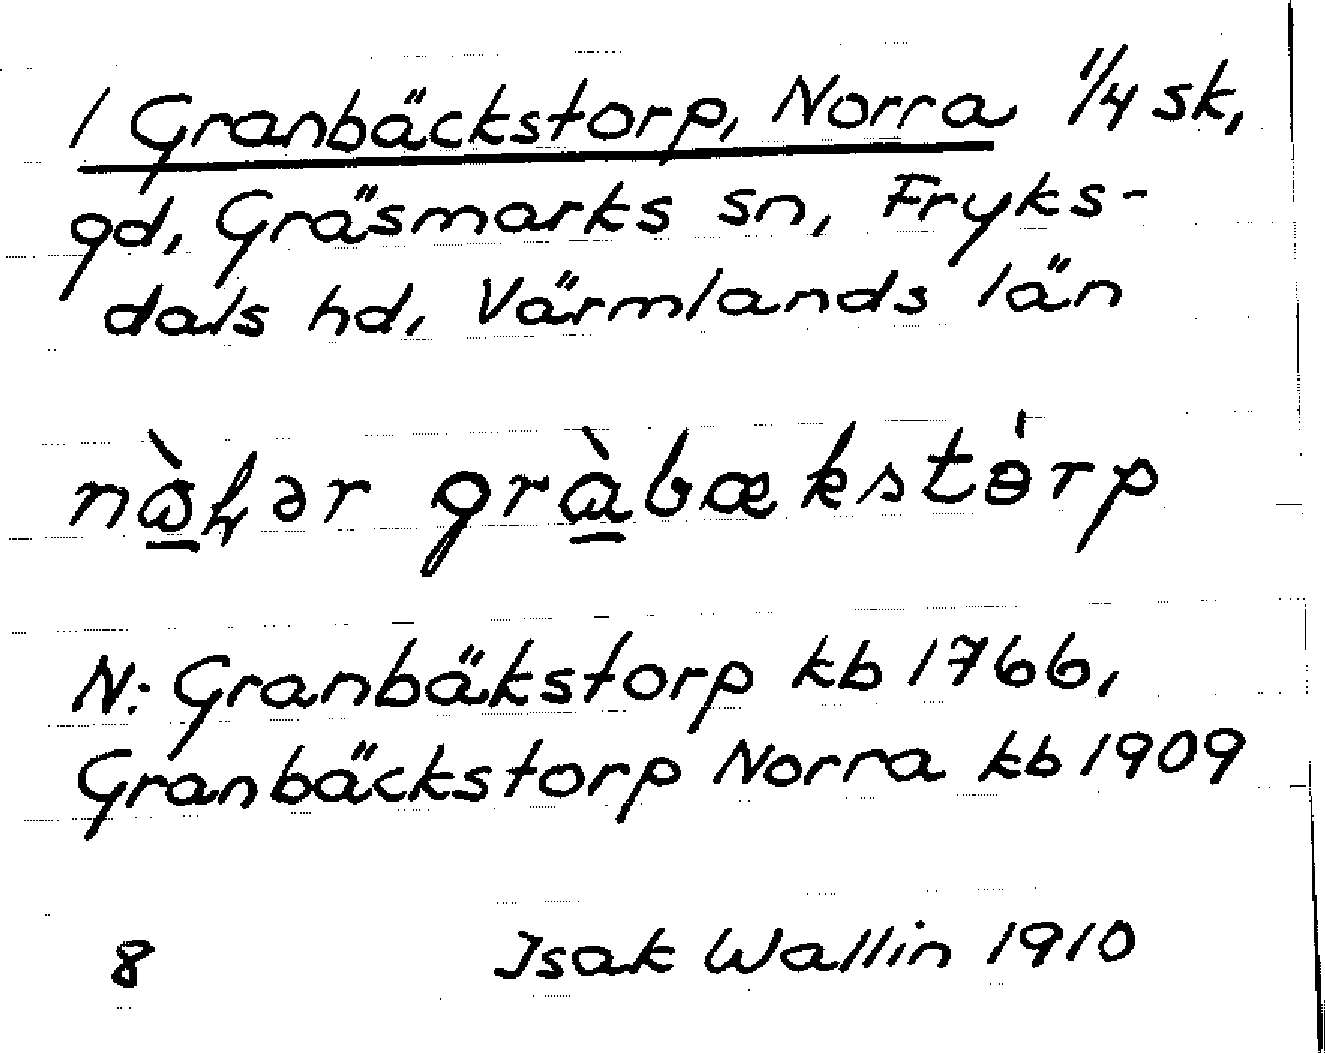 1 Granbäckstorp, Norra 1/4 sk,
gd, Gräsmarks sn, Fryks-
dals hd, Värmlands län
gràbækstɵ̀rp
N: Granbäkstorp kb 1766,
Granbäckstorp Norra kb 1909
8 Isak Wallin 1910